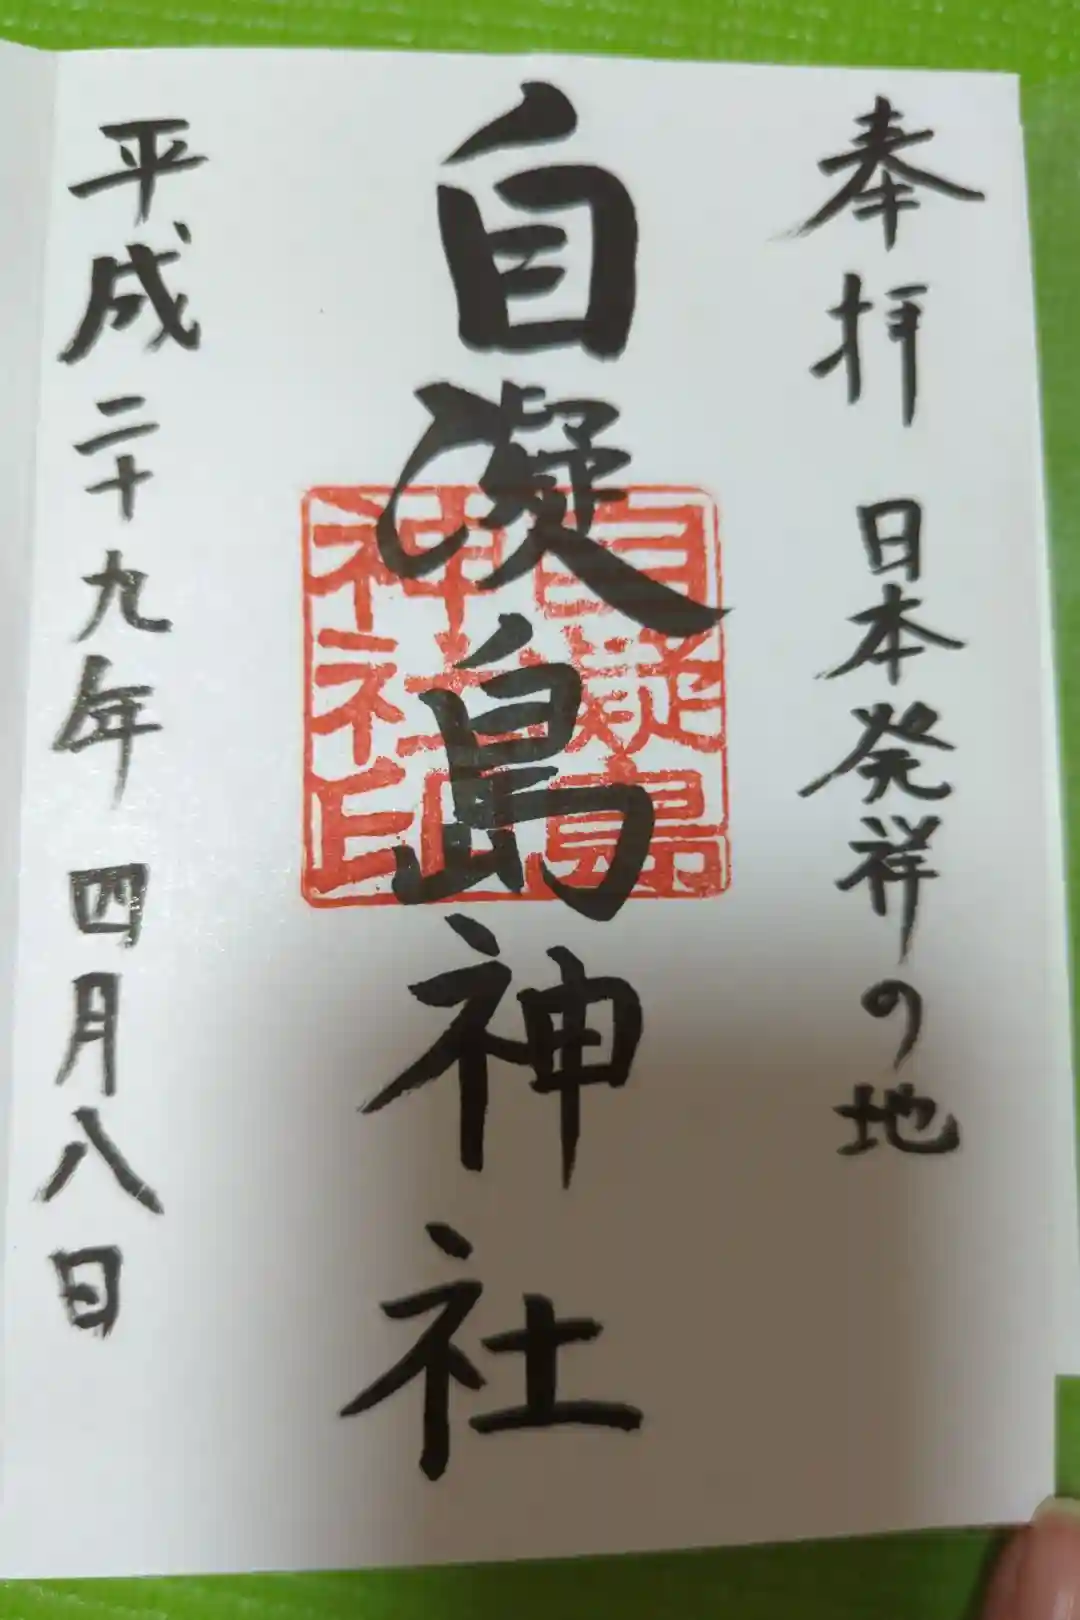 奉拝 日本発祥の地
自凝島神社
自凝島
神社印
平成二十九年 四月八日